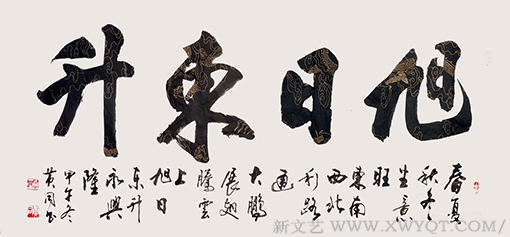 旭日東升
春夏
秋冬
生意
旺
東南
西北
利路
通
大鵬
展翅
騰雲
上
旭日
东升
永興
隆
甲午冬
新文艺 WWW.XWYQT.COM